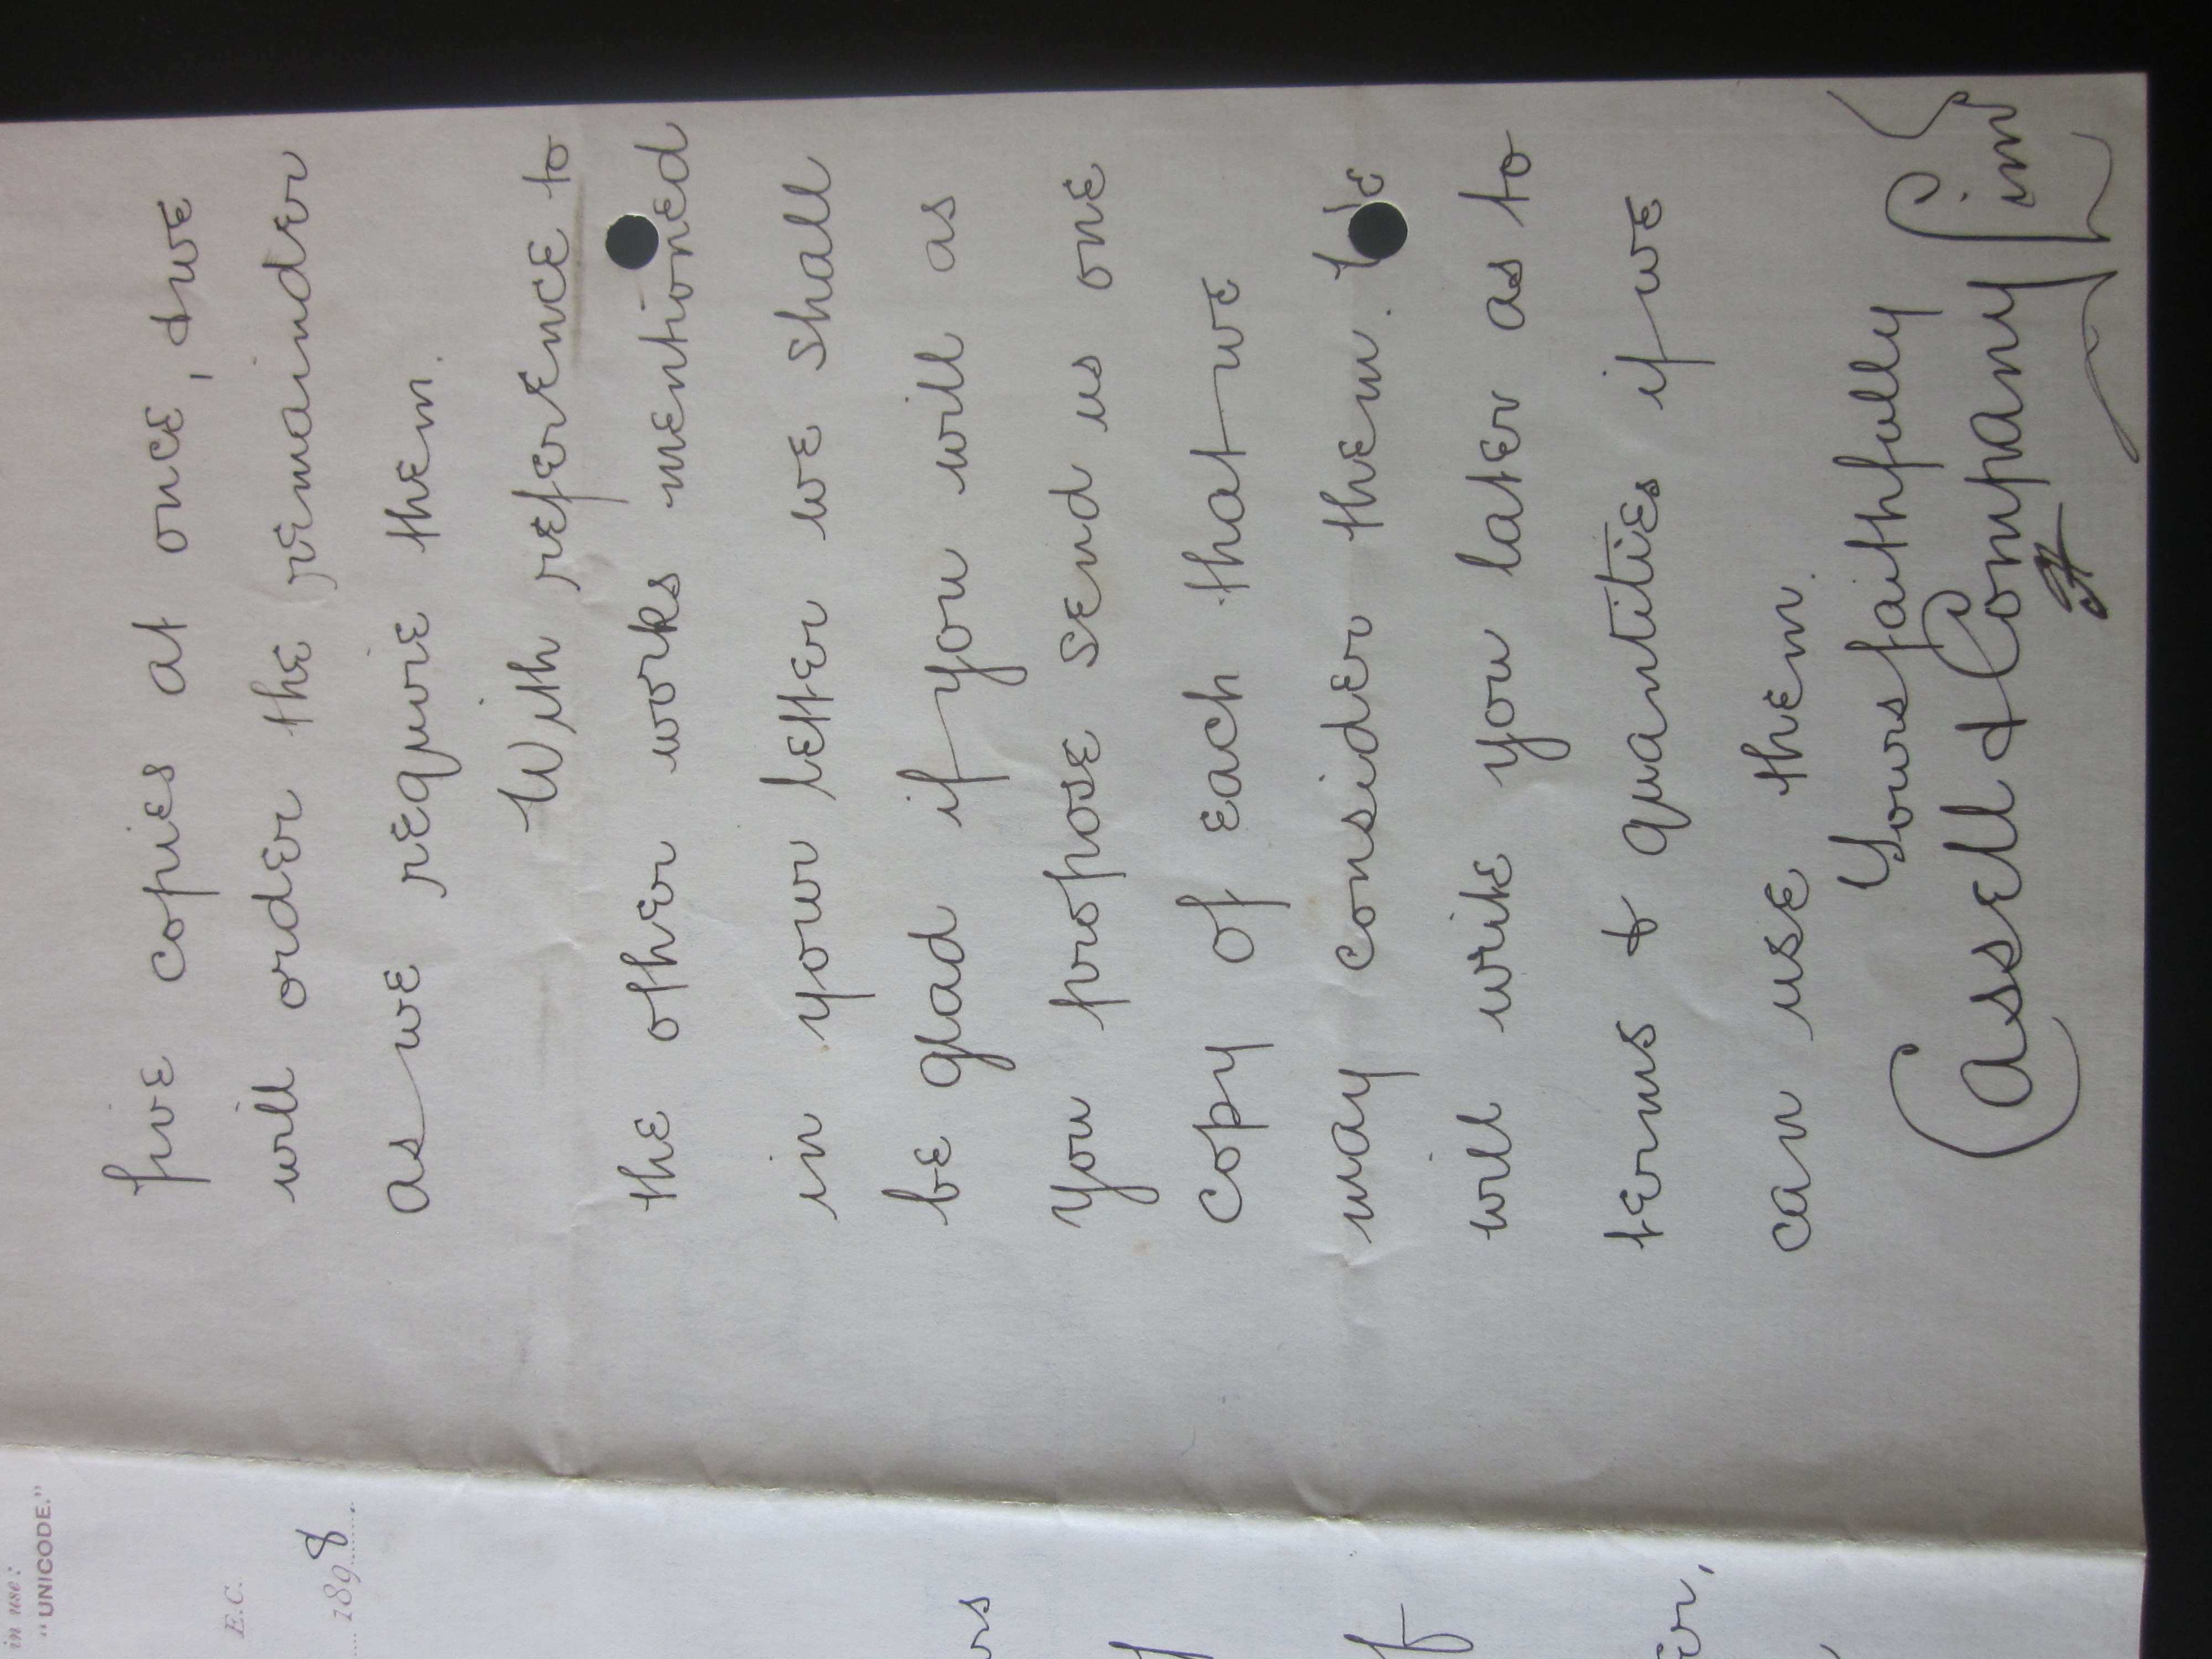 in use:
"UNICODE."
E.C.
1898.
five copies at once, & we
will order the remainder
as we require them.
With reference to
the other works mentioned
in your letter we shall
be glad if you will as
you propose send us one
copy of each that we
may consider them. We
will write you later as to
terms & quantities if we
can use them.
Yours faithfully
Cassell & Company Lim